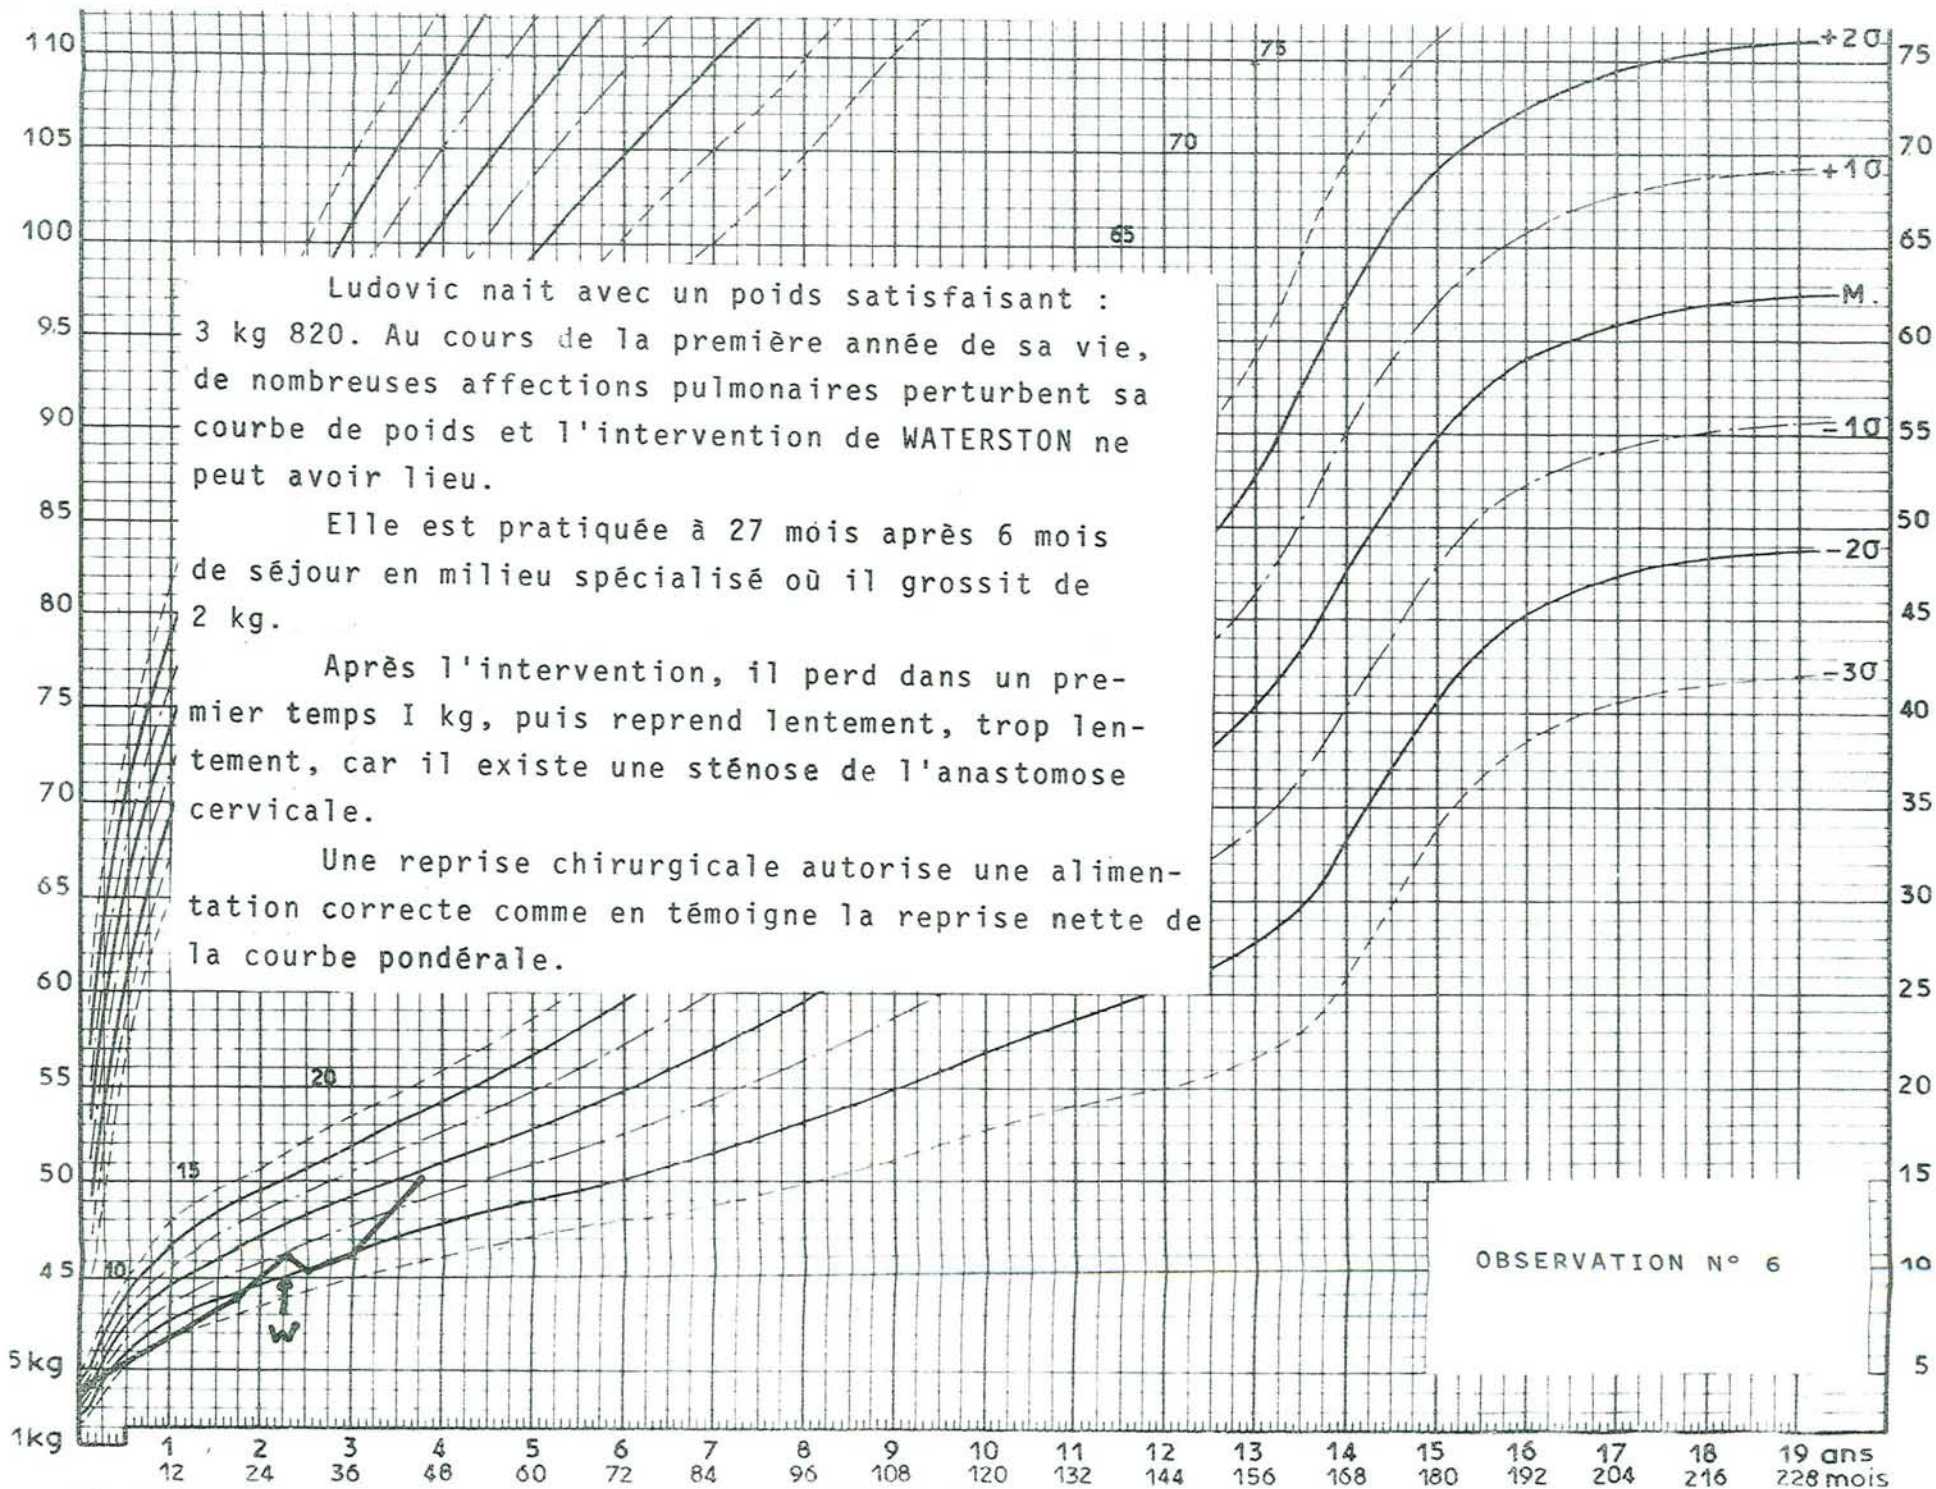 110
105
100
95
90
85
80
75
70
65
60
55
50
45
5 kg
1kg
75
70
65
20
15
10
Ludovic nait avec un poids satisfaisant :
3 kg 820. Au cours de la première année de sa vie,
de nombreuses affections pulmonaires perturbent sa
courbe de poids et l'intervention de WATERSTON ne
peut avoir lieu.
Elle est pratiquée à 27 mois après 6 mois
de séjour en milieu spécialisé où il grossit de
2 kg.
Après l'intervention, il perd dans un pre-
mier temps I kg, puis reprend lentement, trop len-
tement, car il existe une sténose de l'anastomose
cervicale.
Une reprise chirurgicale autorise une alimen-
tation correcte comme en témoigne la reprise nette de
la courbe pondérale.
W
+2σ
+1σ
M.
-1σ
-2σ
-3σ
75
70
65
60
55
50
45
40
35
30
25
20
15
10
5
OBSERVATION N° 6
1 2 3 4 5 6 7 8 9 10 11 12 13 14 15 16 17 18 19 ans
12 24 36 48 60 72 84 96 108 120 132 144 156 168 180 192 204 216 228 mois